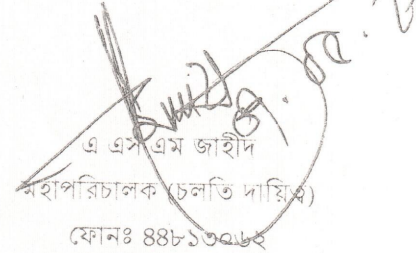 এ এস এম জাহীদ
মহাপরিচালক (চলতি দায়িত্ব)
ফোনঃ ৪৪৮১৩০৬২